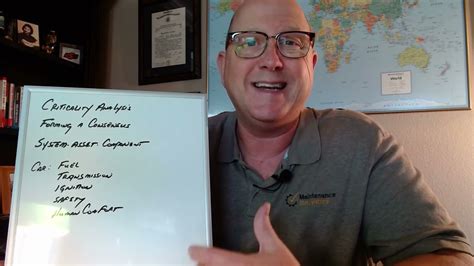 CRITICALITY ANALYSIS
FORMING A CONSENSUS
SYSTEM-ASSET COMPONENT
CAR: FUEL
TRANSMISSION
IGNITION
SAFETY
HUMAN COMFORT
Maintenance
World